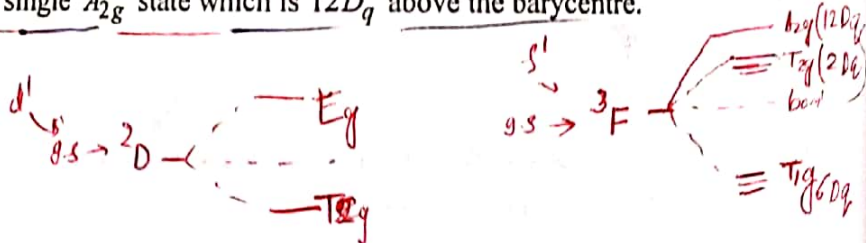 single A₂g state which is 12Dq above the barycentre.
d¹
g.s → ²D
Eg
T₂g
g.s → ³F
A₂g (12Dq
T₂g (2Dq)
T₁g 6Dq